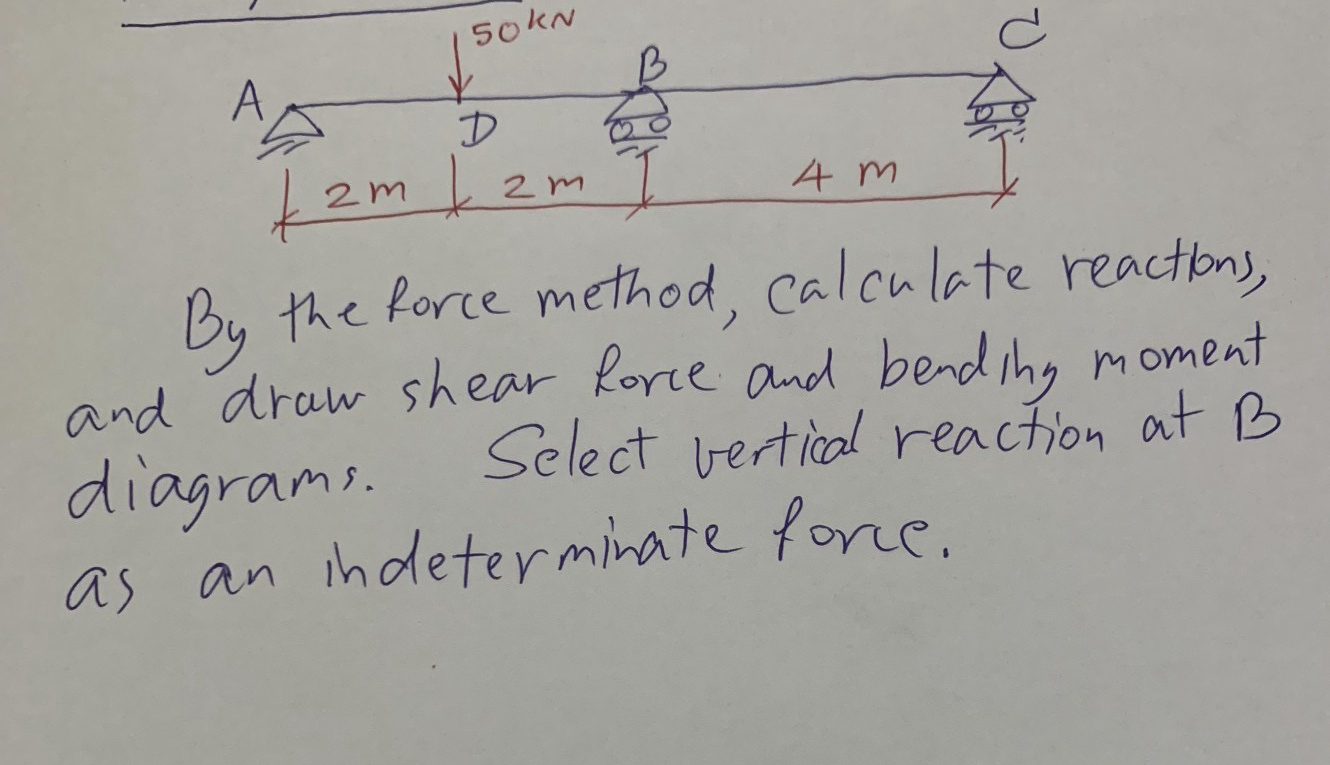 50 kN
A
B
C
D
2 m
2 m
4 m
By the force method, calculate reactions,
and draw shear force and bending moment
diagrams. Select vertical reaction at B
as an indeterminate force.